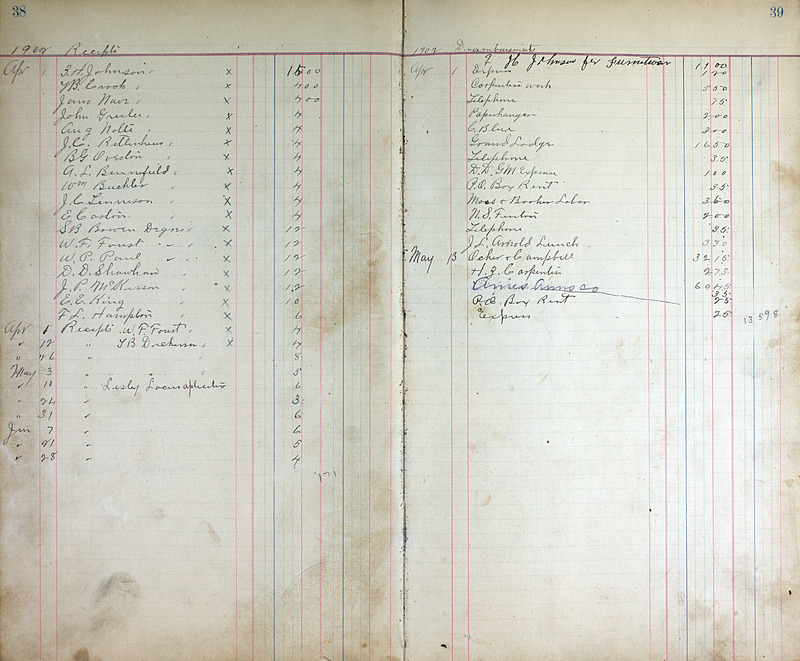 38
1902 Receipts
Apr 1 F. H. Johnson x 15 00
J B. Crook x 4 00
Janis x 4 00
John Greeler x 4
Aug Nolte x 4
J. C. Rittenhous x 4
B G Overton x 4
A. L. Bennefield x 4
Wm Buehler x 4
J. C. Tennison x 4
E Caston x 4
S B Bowen x 12
W. F. Foust x 12
W. P. Paul x 12
D. D. Shawhan x 12
J. P. McKisson x 12
E. E. King x 10
F L. Hampton x 6
Apr 1 Receipts W. F. Foust x 4
" 12 " J B Dickens x 4
" 26 " 8
May 3 " 5
" 10 " 6
" 24 " 3
" 31 " 6
Jun 7 " 6
" 21 " 5
" 28 " 4
171
39
1902 Disembursments
F H Johnson for furnitur 11 00
Apr 1 Express
Carpenters work 5 50
Telephone 75
Paperhanger 2 00
C Blue 2 00
Grand Lodge 16 50
Telephone 35
D. D. G M Expense 1 00
P. O. Box Rent 35
Moss & Booker Labor 3 50
N. S. Fenton 2 00
Telephone 35
J L. Arnold Lunch 3 30
May 13 Ocker & Campbell 32 15
H. Z. Carpenter 2 73
Ames 60 45
P. O. Box Rent 35
Express 25 135 98